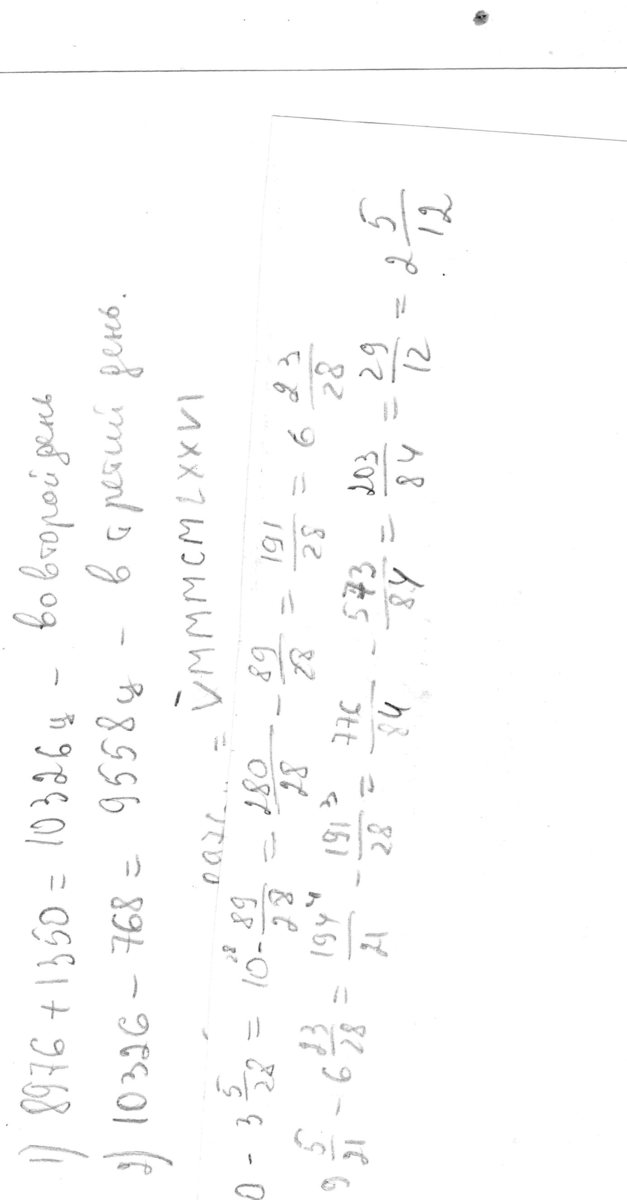 1) 8976 + 1350 = 10326 ц - во второй день
2) 10326 - 768 = 9558 ц - в третий день.
= V̅MMMCMLXXVI
0 - 3 5/28 = 10 - 89/28 = 280/28 - 89/28 = 191/28 = 6 23/28
9 5/21 - 6 23/28 = 194/21 - 191/28 = 776/84 - 573/84 = 203/84 = 29/12 = 2 5/12